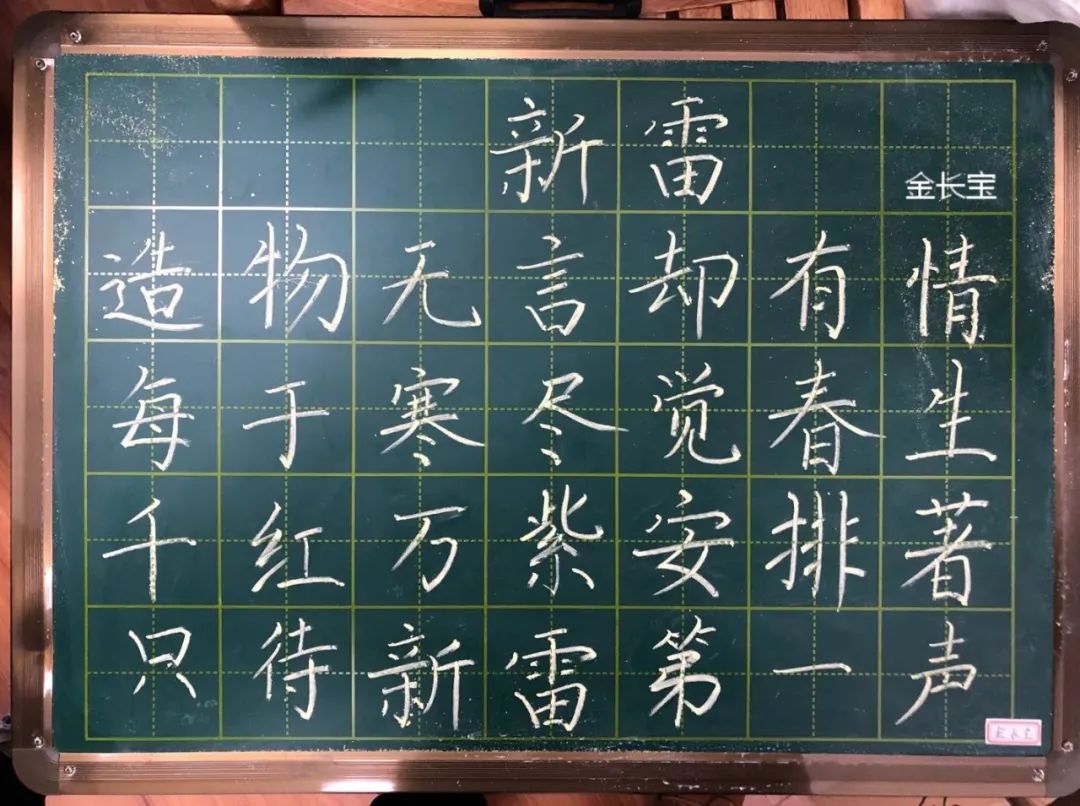 新雷
金长宝
造物无言却有情
每于寒尽觉春生
千红万紫安排著
只待新雷第一声